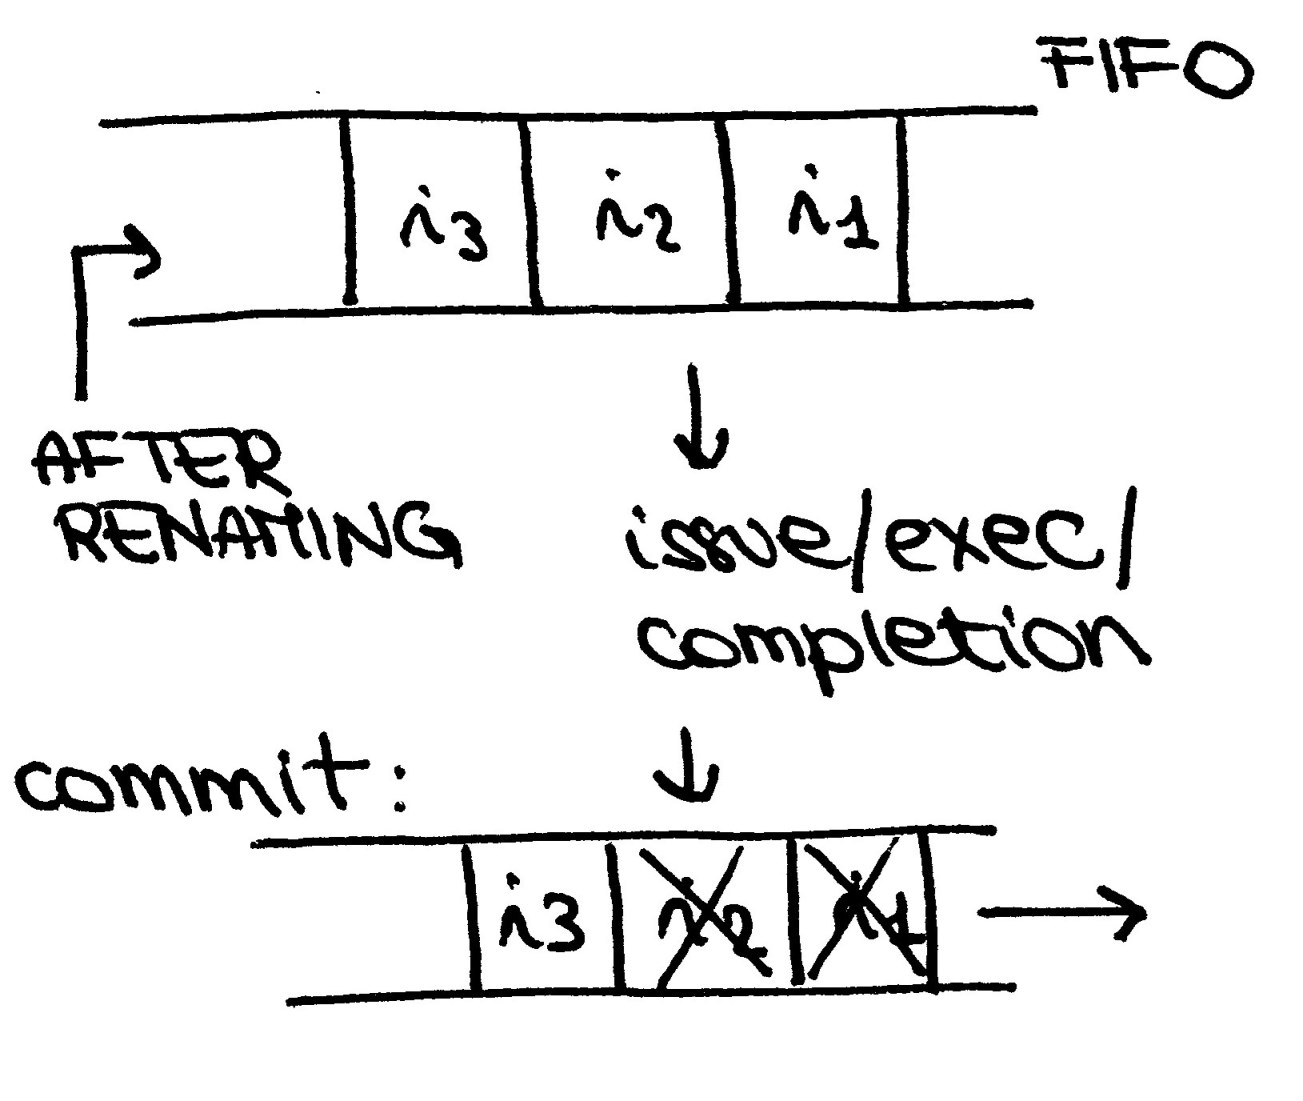 FIFO
i3 i2 i1
AFTER
RENAMING
issue/exec/
completion
commit:
i3 i2 i1